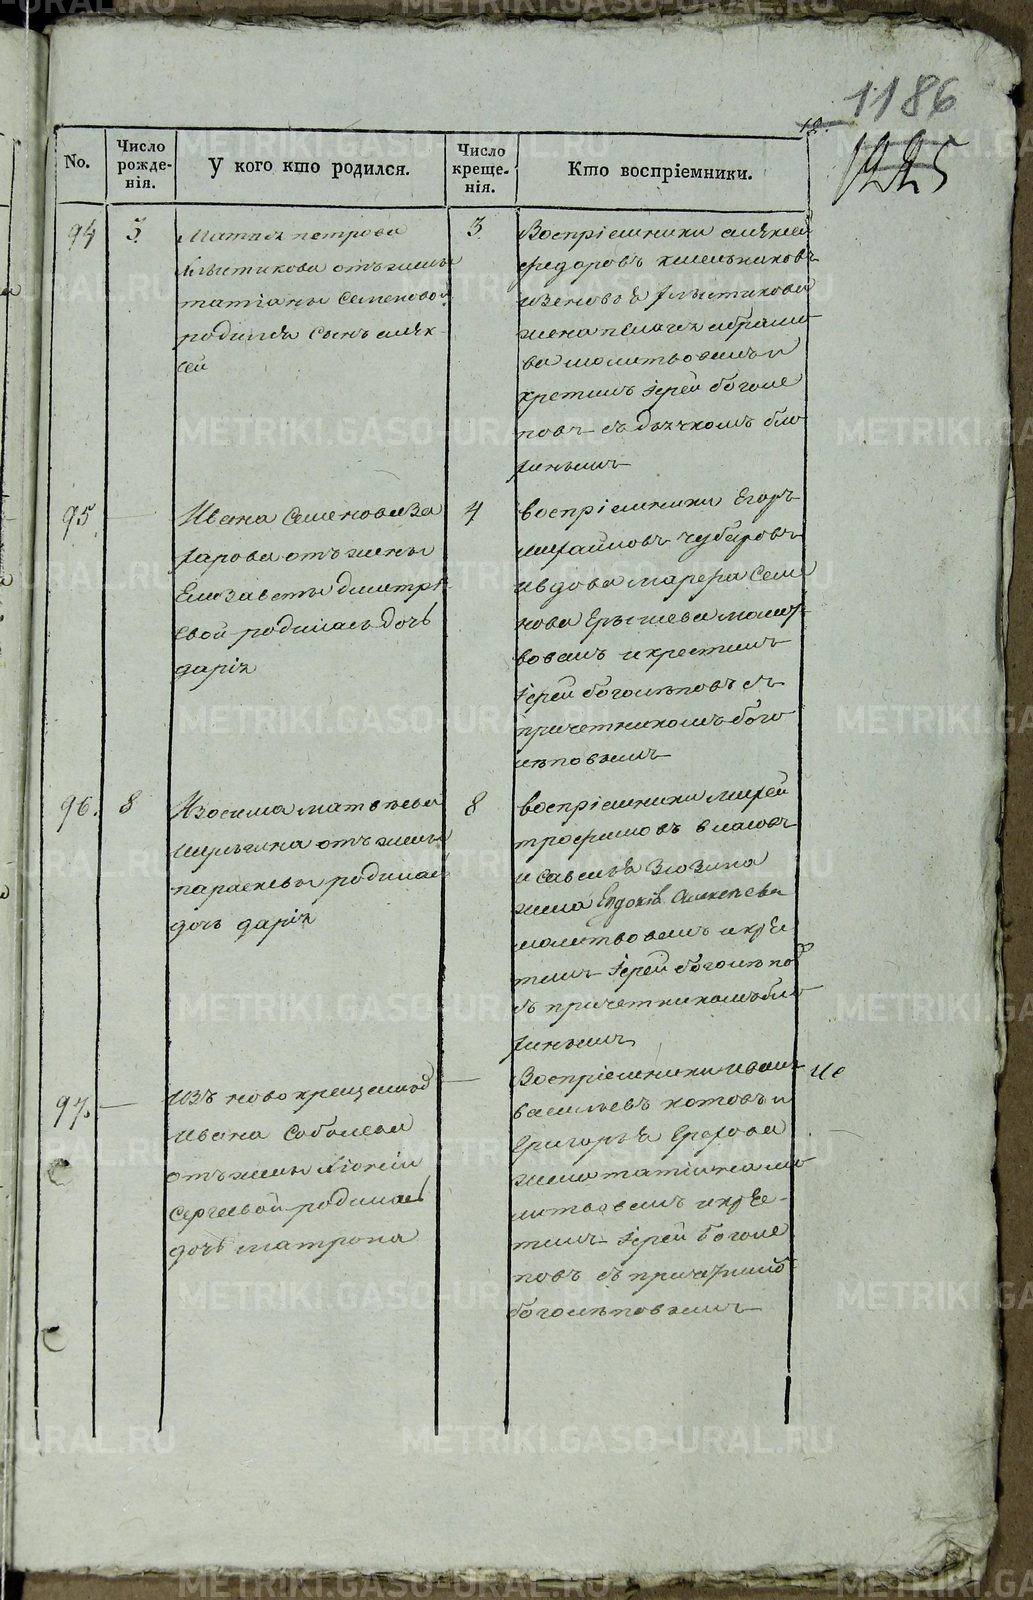 1186
1225
No.
Число рожде-нія.
У кого кто родился.
Число креще-нія.
Кто воспріемники.
94
3
Матвея петрова
отъ жены
татіаны Семеновой
родился Сынъ алек
сей
3
Воспріемники алексей
федоровъ хмельниковъ
жена пелагея абрамо
ва молитвовалъ и
крестилъ Іерей боголе
повъ съ дьячкомъ
95
Ивана Семенова За
харова отъ жены
Елизаветы дмитрі
евой родилась дочь
дарія
4
воспріемники Егоръ
михайловъ чубаровъ
и вдова марфа Семе
нова молит
вовалъ и крестилъ
Іерей боголеповъ съ
причетникомъ бого
леповымъ
96.
8
Изосима матвеева
отъ жены
параскевы родилась
дочь дарія
8
воспріемники
трофимовъ власовъ
и савелья Зюзина
жена Евдокія алексеева
молитвовалъ и кре
тилъ Іерей боголепов
съ причетникомъ
97.
Изъ новокрещеныхъ
Ивана Соболева
отъ жены
Сергеевой родилась
дочь матрона
Воспріемники иванъ
васильевъ котовъ и
григорья Ерофеева
жена татіана мо
литвовалъ и кре
тилъ Іерей боголе
повъ съ
боголеповымъ
METRIKI.GASO-URAL.RU